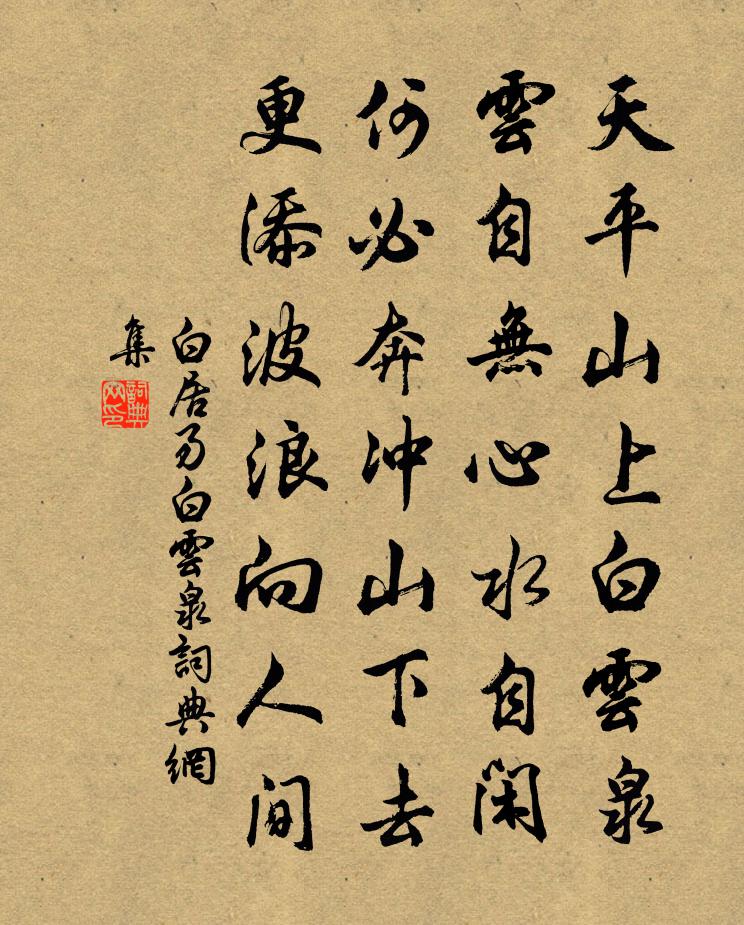 天平山上白雲泉
雲自無心水自閑
何必奔冲山下去
更添波浪向人間
白居易白雲泉詞典網
集
詞典
网印